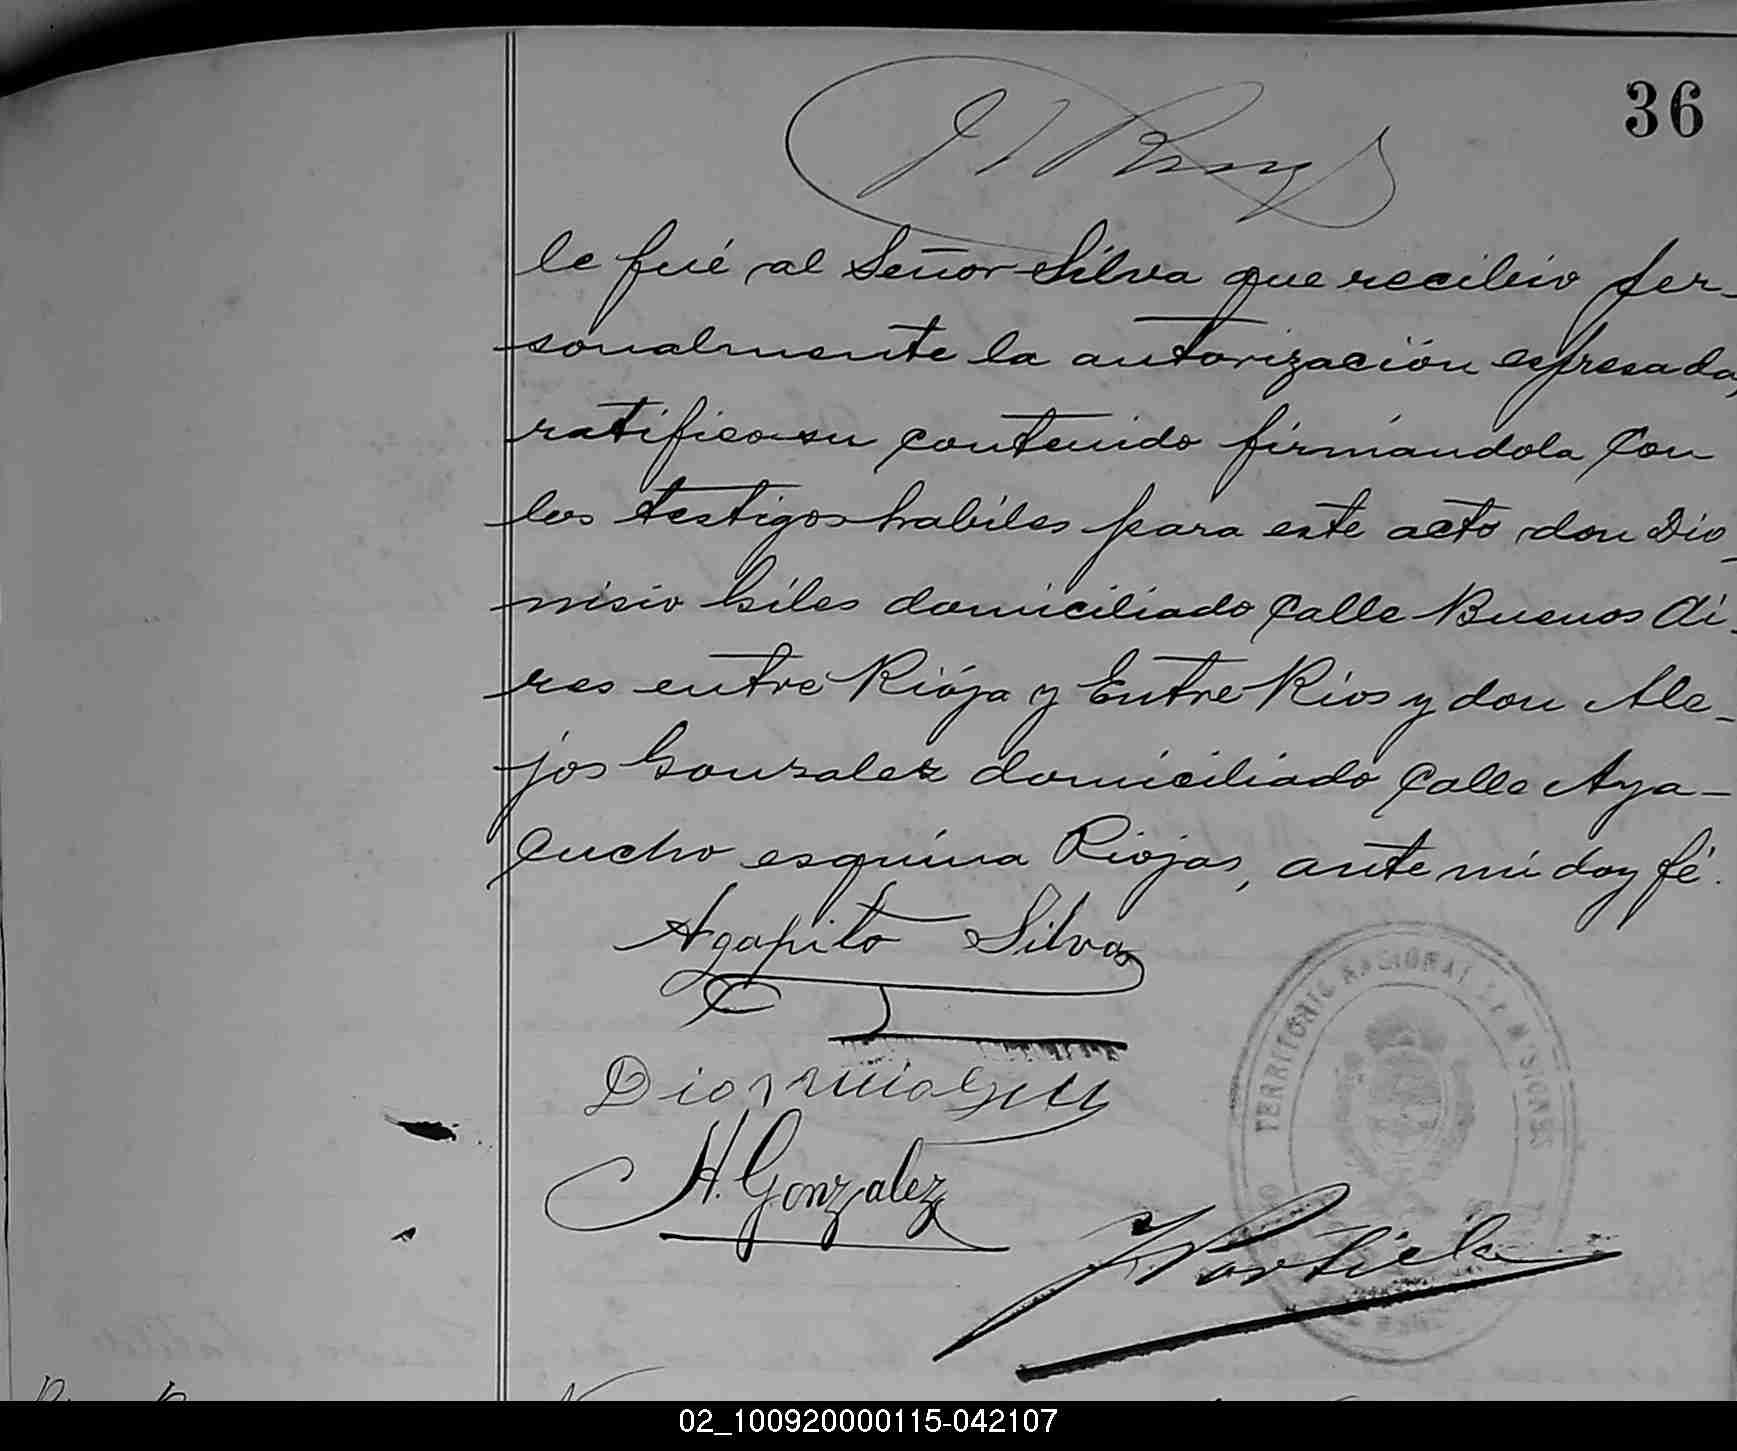 36
le fué al Señor Silva que recibio per-
sonalmente la autorización espresada,
ratifico su contenido firmándola con
los testigos habiles para este acto don Dio-
nisio Giles domiciliado calle Buenos Ai-
res entre Riója y Entre Rios y don Ale-
jos Gonzalez domiciliado calle Aya-
cucho esquina Riojas, ante mi doy fé.
Agapito Silva
TERRITORIO NACIONAL DE MISIONES
H. Gonzalez
02_100920000115-042107